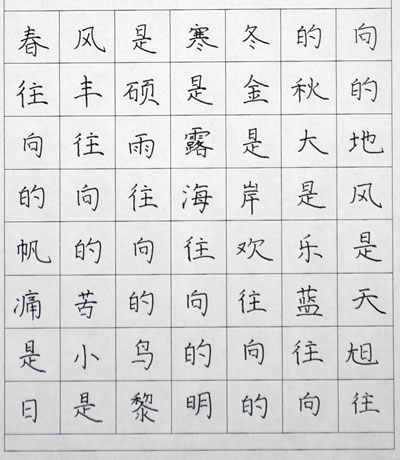 春风是寒冬的向
往丰硕是金秋的
向往雨露是大地
的向往海岸是风
帆的向往欢乐是
痛苦的向往蓝天
是小鸟的向往旭
日是黎明的向往